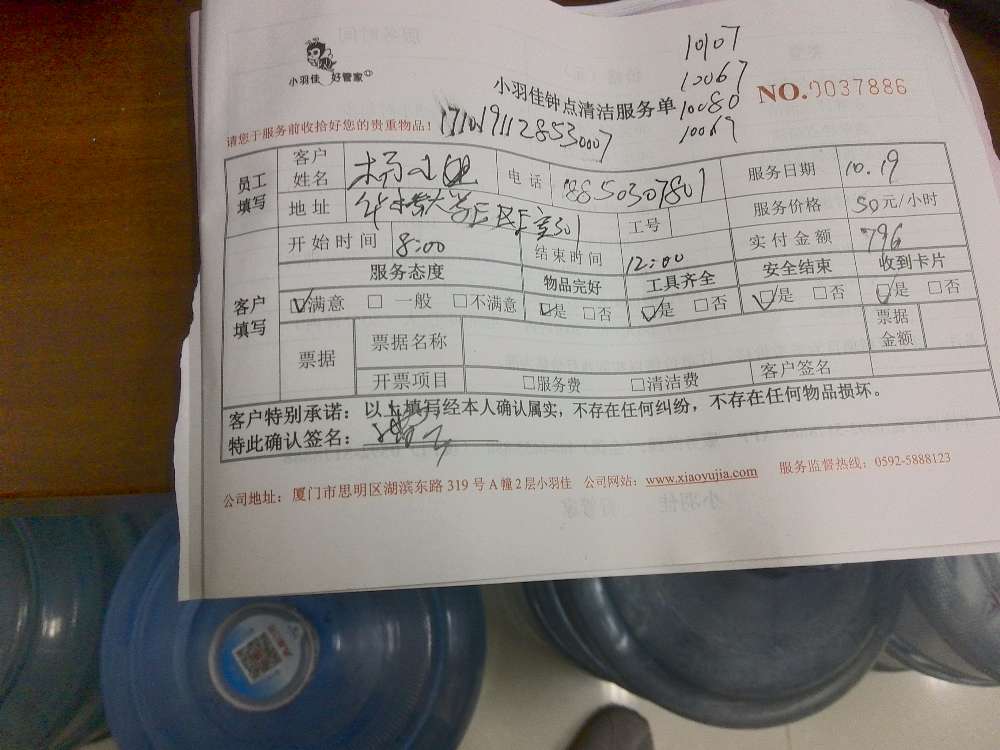 小羽佳 好管家
小羽佳钟点清洁服务单
10107
12067
10080
10069
NO.0037886
请您于服务前收拾好您的贵重物品！
17101911285
员工填写 客户姓名 杨小姐 电话 服务日期 10.19
地址 工号 服务价格 50元/小时
客户填写 开始时间 8:00 结束时间 12:00 实付金额 796
服务态度 物品完好 工具齐全 安全结束 收到卡片
☑满意 □一般 □不满意 ☑是 □否 ☑是 □否 ☑是 □否 ☑是 □否
票据 票据名称 票据金额
开票项目 □服务费 □清洁费 客户签名
客户特别承诺：以上填写经本人确认属实，不存在任何纠纷，不存在任何物品损坏。
特此确认签名：
公司地址：厦门市思明区湖滨东路 319 号 A 幢 2 层小羽佳 公司网站：www.xiaoyujia.com 服务监督热线：0592-5888123